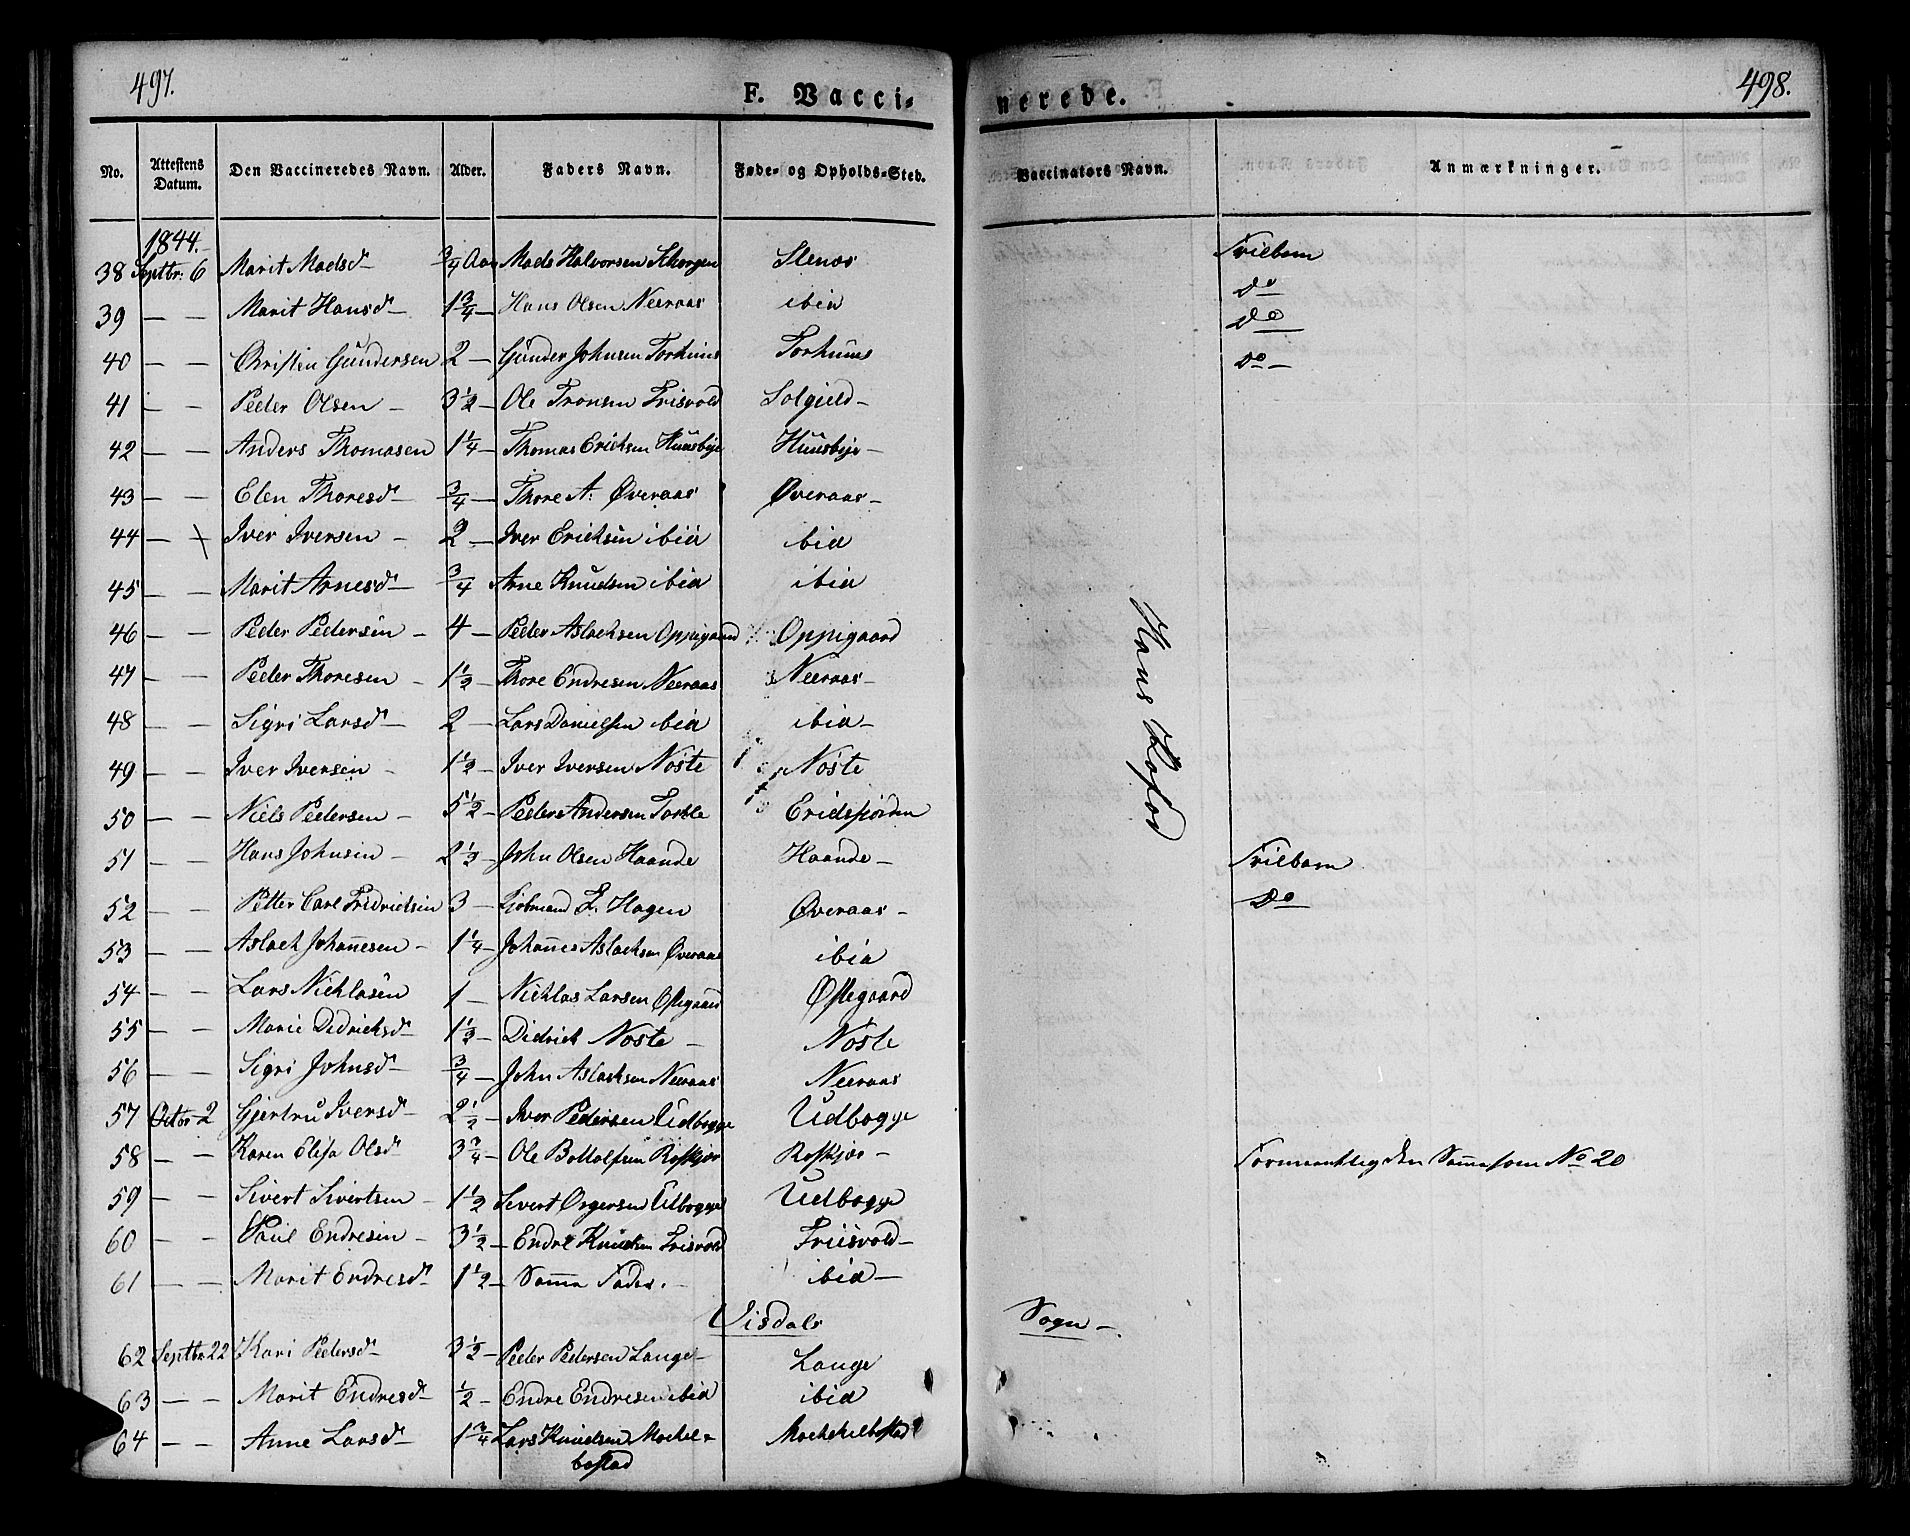 497.
F. Vacci-
nerede.
498.
No. Attestens Datum. Den Vaccineredes Navn. Alder. Faders Navn. Føde- og Opholds-Sted. Vaccinators Navn. Anmærkninger.
1844.
38 Septbr: 6 Marit Madsd 3/4 Aar Mads Halvorsen Schorgen Stenos
39 — — Marit Hansd 1 3/4 — Hans Olsen Neeraas ibid Do
40 — — Christen Gundersen 2 — Gunder Johnsen Torhuus Torhuus Do
41 — — Peder Olsen — 3 1/2 — Ole Tronsen Frisvold Solgield —
42 — — Anders Thomasen 1 1/4 — Thomas Erichsen Huusbye Huusbye —
43 — — Elen Thoresd — 3/4 — Thore A: Øveraas Øveraas —
44 — — Iver Iversen — 2 — Iver Erichsen ibid ibid
45 — — Marit Arnesd — 3/4 Arne Knudsen ibid ibid
46 — — Peder Pedersen — 4 — Peder Aslachsen Oppigaard Oppigaard
47 — — Peder Thoresen — 1 1/2 — Thore Endresen Neeraas Neeraas —
48 — — Sigri Larsd — 2 — Lars Danielsen ibid ibid —
49 — — Iver Iversen — 1 1/2 — Iver Iversen Nöste Nöste
50 — — Niels Pedersen — 5 1/2 — Peder Andersen Torhle Eridsfiorden
51 — — Hans Johnsen — 2 1/2 — John Olsen Haande Haande — Trilbarn
52 — — Petter Carl Fridrichsen 3 — Hagen Øveraas — Do
53 — — Aslach Johanesen — 1 1/4 — Johannes Aslachsen Øveraas ibid
54 — — Lars Nichlasen 1 — Nichlas Larsen Øftegaard Øftegaard
55 — — Marie Didrichsd 1 1/2 — Didrich Nöste — Nöste
56 — — Sigri Johnsd — 3/4 — John Aslachsen Neeraas Neeraas
57 Octbr 2 Gjertru Iversd — 2 1/2 — Iver Pedersen Udbogge Udbogge
58 — — Karen Elisa Olsd 3 3/4 — Ole Bottolfsen Røskjær Røskjær — Formeentlig den Samme som No 20
59 — — Sivert Sivertsen — 1 1/2 Sivert Orgersen Udbogge Udbogge
60 — — Paul Endresen — 3 1/2 — Endre Knudsen Frisvold Friisvold —
61 — — Marit Endresd 1 1/2 — Samme Fader. — ibid —
Visdals Sogn —
62 Septbr 22 Kari Pedersd — 3 1/2 — Peder Pedersen Lange — Lange
63 — — Marit Endresd 1/2 — Endre Endresen ibid ibid
64 — — Anne Larsd — 1 3/4 Lars Knudsen Mochel-
bostad Mochelbostad
Hans Lofod